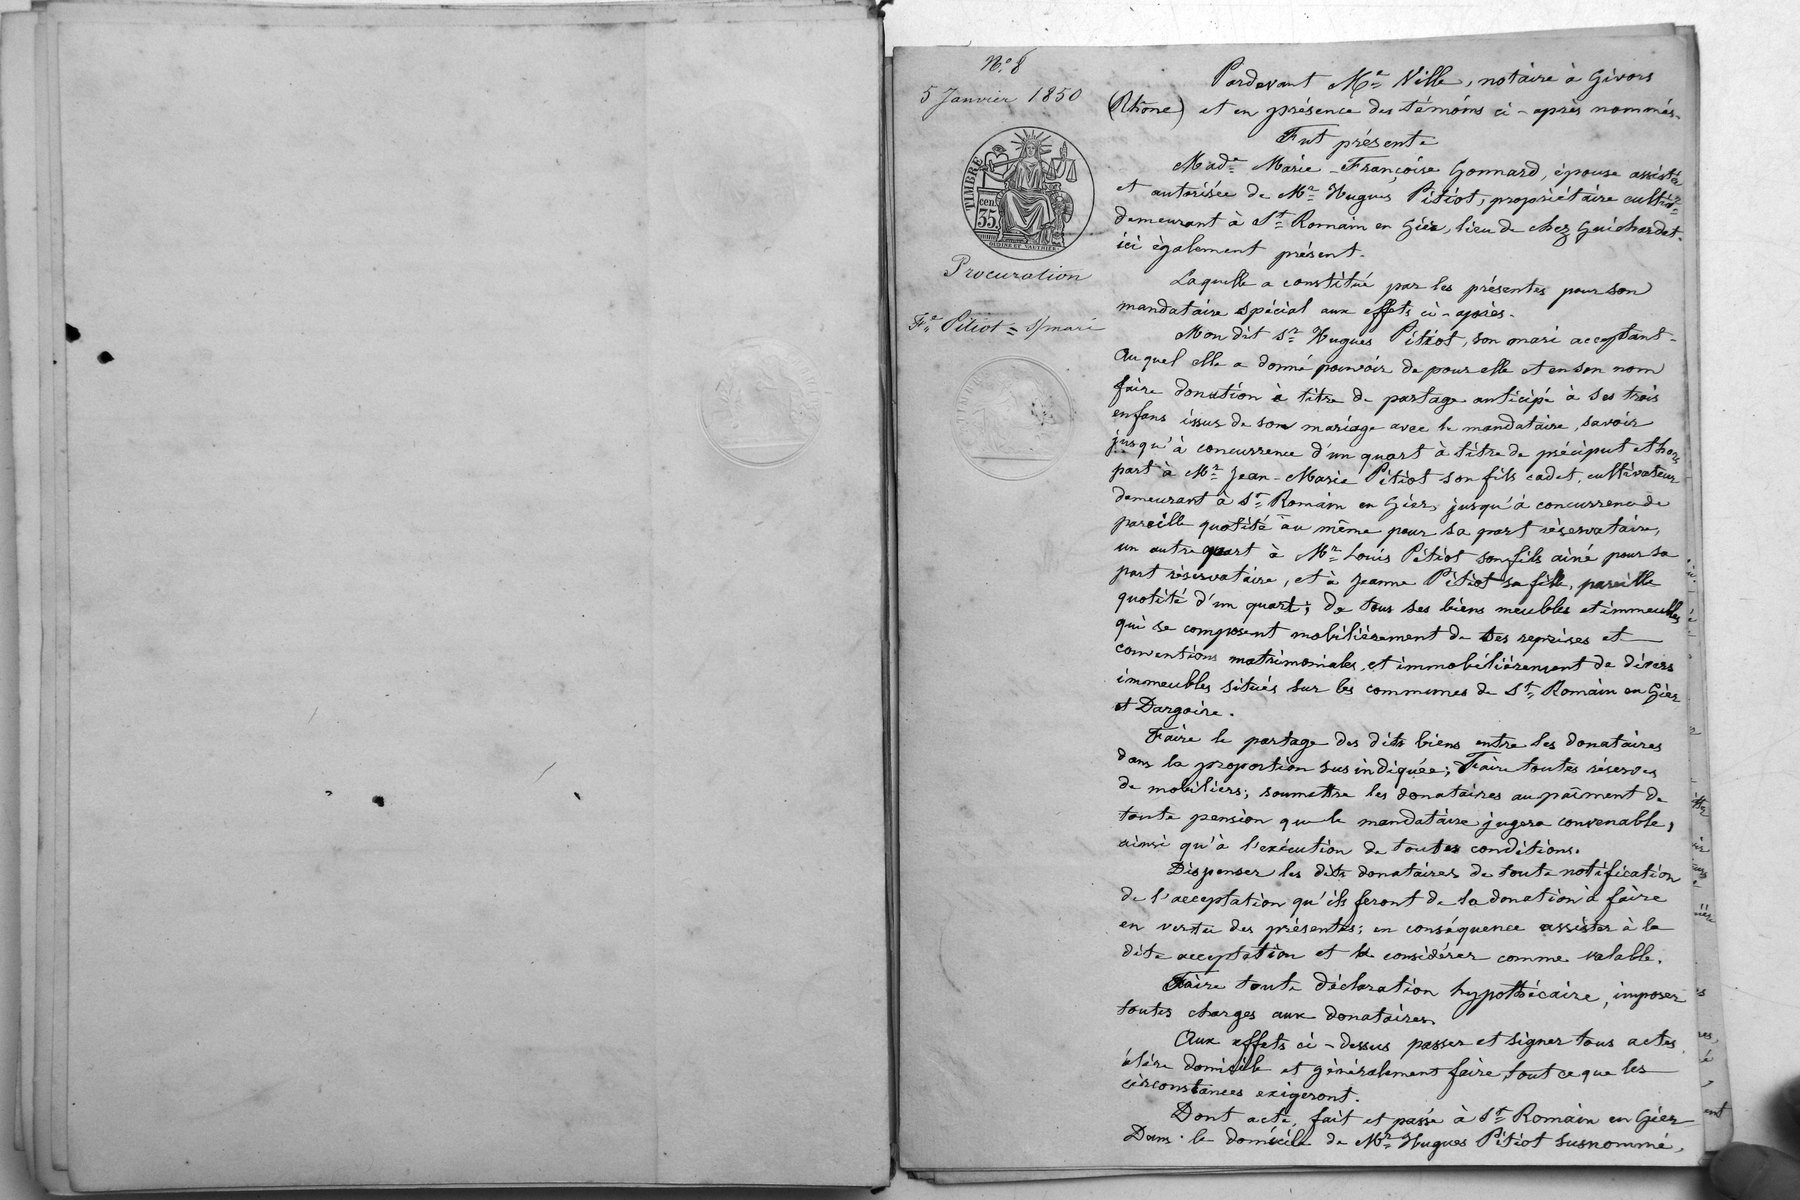 N.° 8
5 Janvier 1850
TIMBRE
cen
35.
Procuration
F.e Pitiot = s/ mari
Pardevant Me Ville, notaire à Givors
(Rhône) et en présence des témoins ci-après nommés.
Fut présente
Made Marie-Françoise Gonnard, épouse assistée
et autorisée de Mr Hugues Pitiot, propriétaire cultivr
demeurant à St Romain en Gier, lieu de chez Guichardet.
ici également présent.
Laquelle a constitué par les présentes pour son
mandataire spécial aux effets ci-après.
Mon dit sr Hugues Pitiot, son mari acceptant.
Auquel elle a donné pouvoir de pour elle et en son nom
faire donation à titre de partage anticipé à ses trois
enfans issus de son mariage avec le mandataire, savoir
jusqu'à concurrence d'un quart à titre de préciput et hors
part à Mr Jean-Marie Pitiot son fils cadet, cultivateur
demeurant à St Romain en Gier, jusqu'à concurrence de
pareille quotité au même pour sa part réservataire,
un autre quart à Mr Louis Pitiot son fils ainé pour sa
part réservataire, et à Jeanne Pitiot sa fille, pareille
quotité d'un quart; de tous ses biens meubles et immeubles
qui se composent mobilièrement de ses reprises et
conventions matrimoniales, et immobilièrement de divers
immeubles situés sur les communes de St Romain en Gier
et Dargoire.
Faire le partage des dits biens entre les donataires
dans la proportion sus indiquée; Faire toutes réserves
de mobiliers; soumettre les donataires au paîment de
toute pension que le mandataire jugera convenable,
ainsi qu'à l'exécution de toutes conditions.
Dispenser les dits donataires de toute notification
de l'acceptation qu'ils feront de la donation à faire
en vertu des présentes; en conséquence assister à la
dite acceptation et la considérer comme valable.
Faire toute déclaration hypothécaire, imposer
toutes charges aux donataires.
Aux effets ci-dessus passer et signer tous actes,
élire domicile et généralement faire tout ce que les
circonstances exigeront.
Dont acte, fait et passé à St Romain en Gier
Dans le domicile de Mr Hugues Pitiot susnommé,